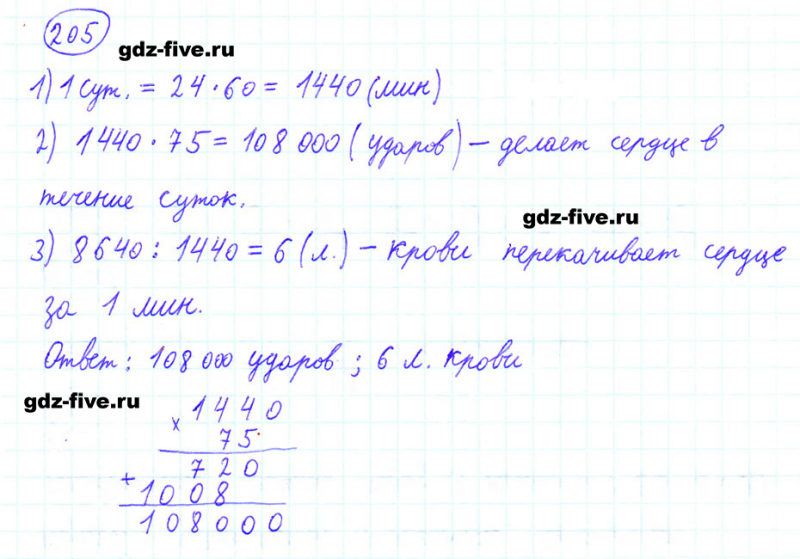 205
gdz-five.ru
1) 1 сут. = 24 · 60 = 1440 (мин)
2) 1440 · 75 = 108 000 (ударов) – делает сердце в
течение суток.
gdz-five.ru
3) 8640 : 1440 = 6 (л.) – крови перекачивает сердце
за 1 мин.
Ответ: 108 000 ударов ; 6 л. крови
gdz-five.ru
× 1440
75
720
+ 1008
108000